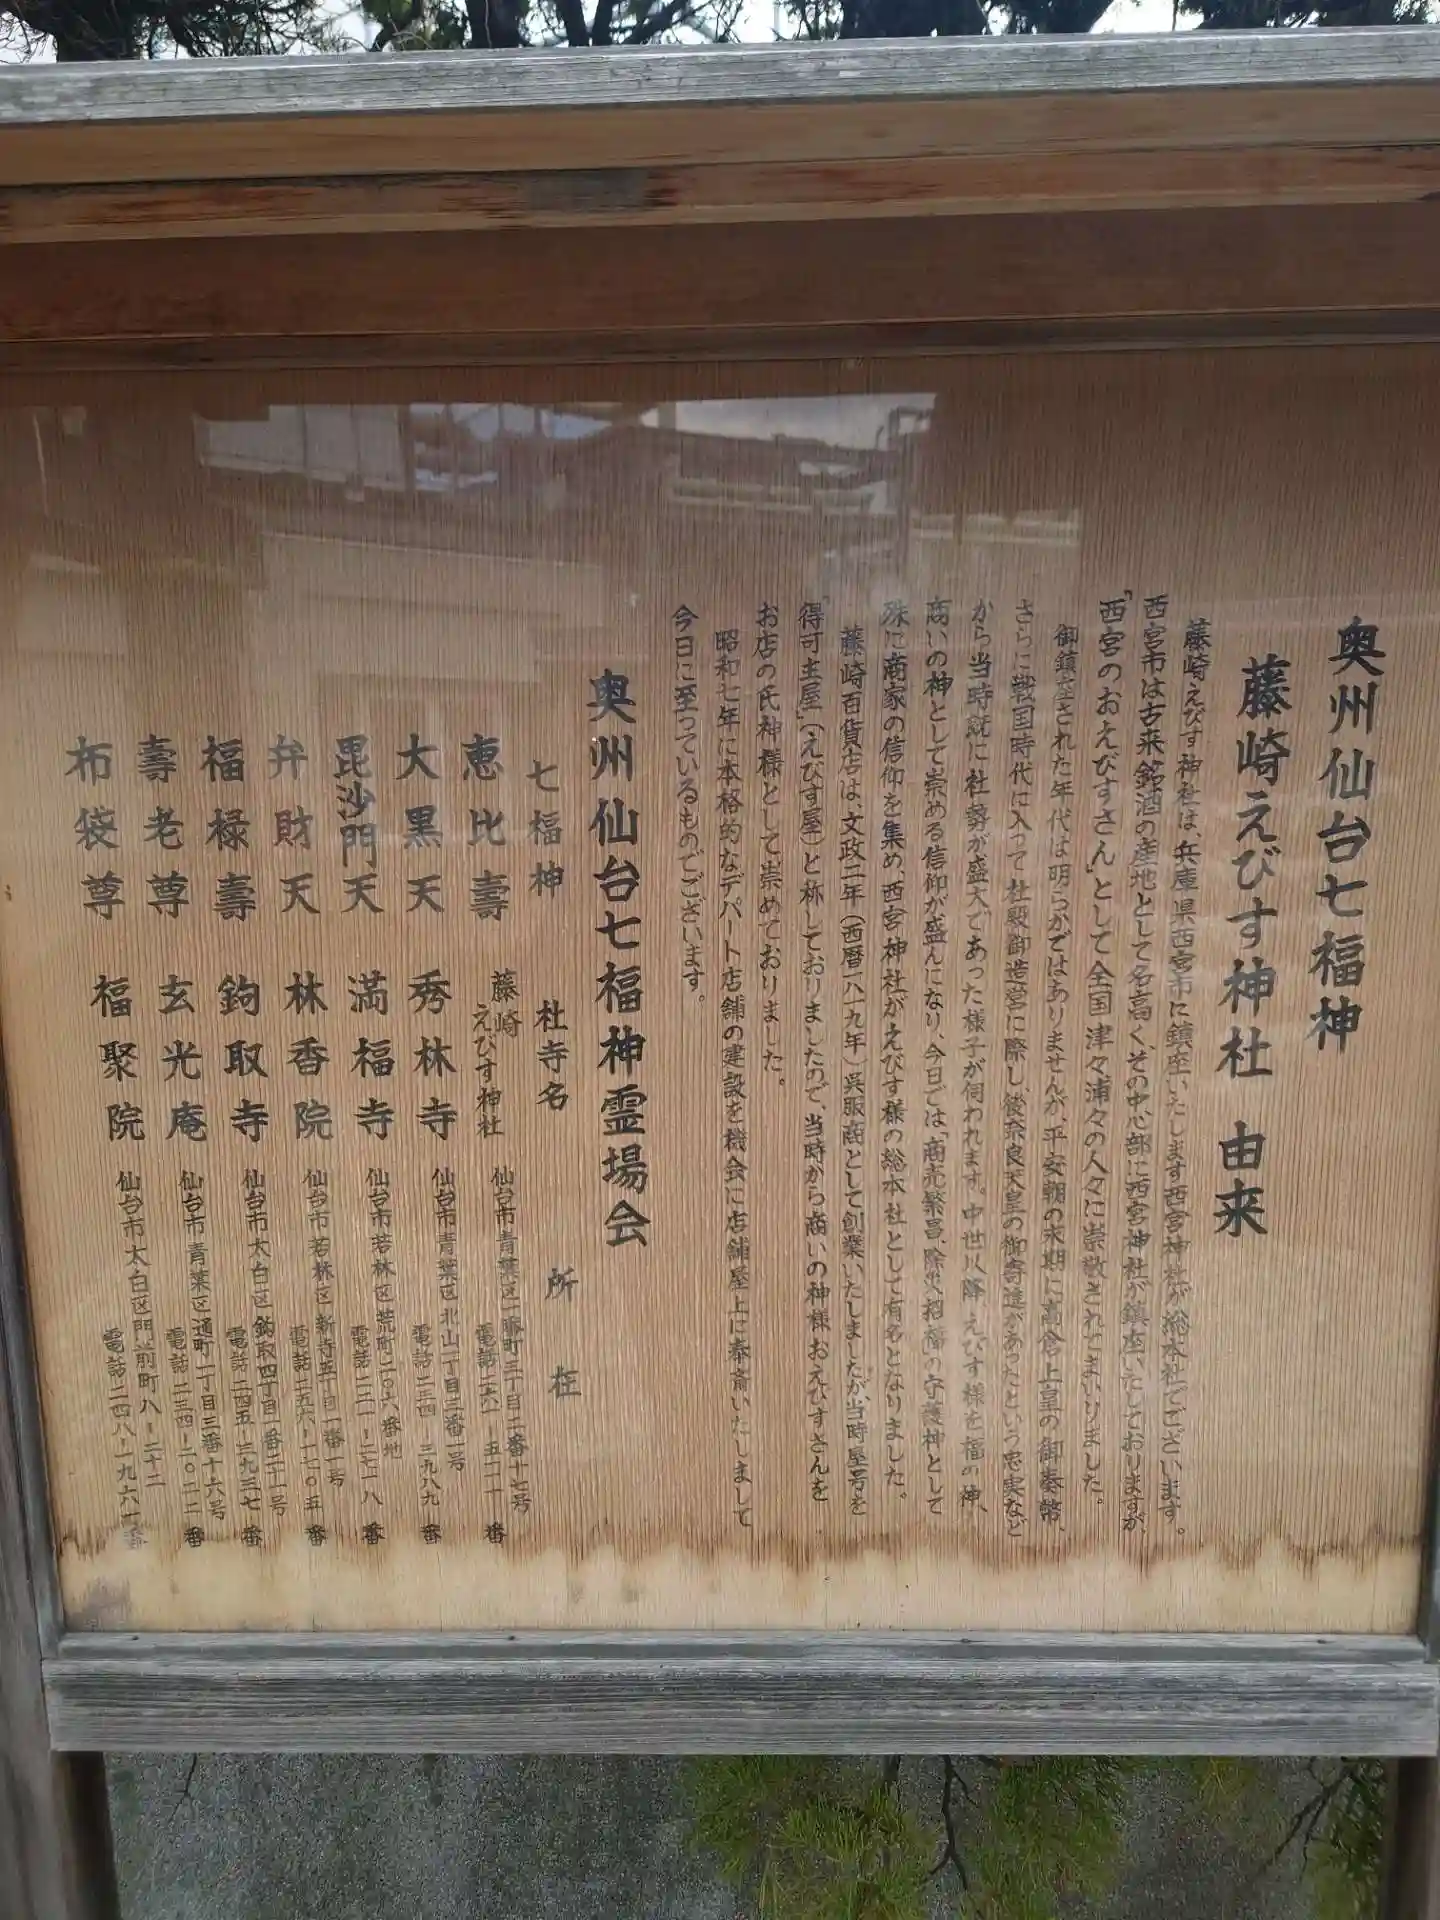 奥州仙台七福神
藤崎えびす神社 由来
藤崎えびす神社は、兵庫県西宮市に鎮座いたします西宮神社が総本社でございます。
西宮市は古来、銘酒の産地として名高く、その中心部に西宮神社が鎮座いたしておりますが、
「西宮のおえびすさん」として全国津々浦々の人々に崇敬されてまいりました。
御鎮座された年代は明らかではありませんが、平安朝の末期に高倉上皇の御奏幣、
さらに戦国時代に入って社殿御造営に際し、後奈良天皇の御寄進があったという忠実など
から当時既に社勢が盛大であった様子が伺われます。中世以降、えびす様を福の神、
商いの神として崇める信仰が盛んになり、今日では、「商売繁昌、除災招福」の守護神として
殊に商家の信仰を集め、西宮神社がえびす様の総本社として有名となりました。
藤崎百貨店は、文政二年(西暦一八一九年)呉服商として創業いたしましたが、当時屋号を
「得可主屋」(えびす屋)と称しておりましたので、当時から商いの神様おえびすさんを
お店の氏神様として崇めておりました。
昭和七年に本格的なデパート店舗の建設を機会に店舗屋上に奉斎いたしまして
今日に至っているものでございます。
奥州仙台七福神霊場会
七福神 社寺名 所在
恵比壽 藤崎えびす神社 仙台市青葉区一番町三丁目二番十七号
電話二六一-五一一一番
大黒天 秀林寺 仙台市青葉区北山一丁目三番一号
電話二三四-三九八九番
毘沙門天 満福寺 仙台市若林区荒町二〇六番地
電話二二一-二七一八番
弁財天 林香院 仙台市若林区新寺五丁目一番一号
電話二五六-一二〇五番
福禄壽 鉤取寺 仙台市太白区鈎取四丁目一番二十一号
電話二四五-三九三七番
壽老尊 玄光庵 仙台市青葉区通町一丁目三番十六号
電話二三四-二〇二二番
布袋尊 福聚院 仙台市太白区門前町八-二十二
電話二四八-一九六一番